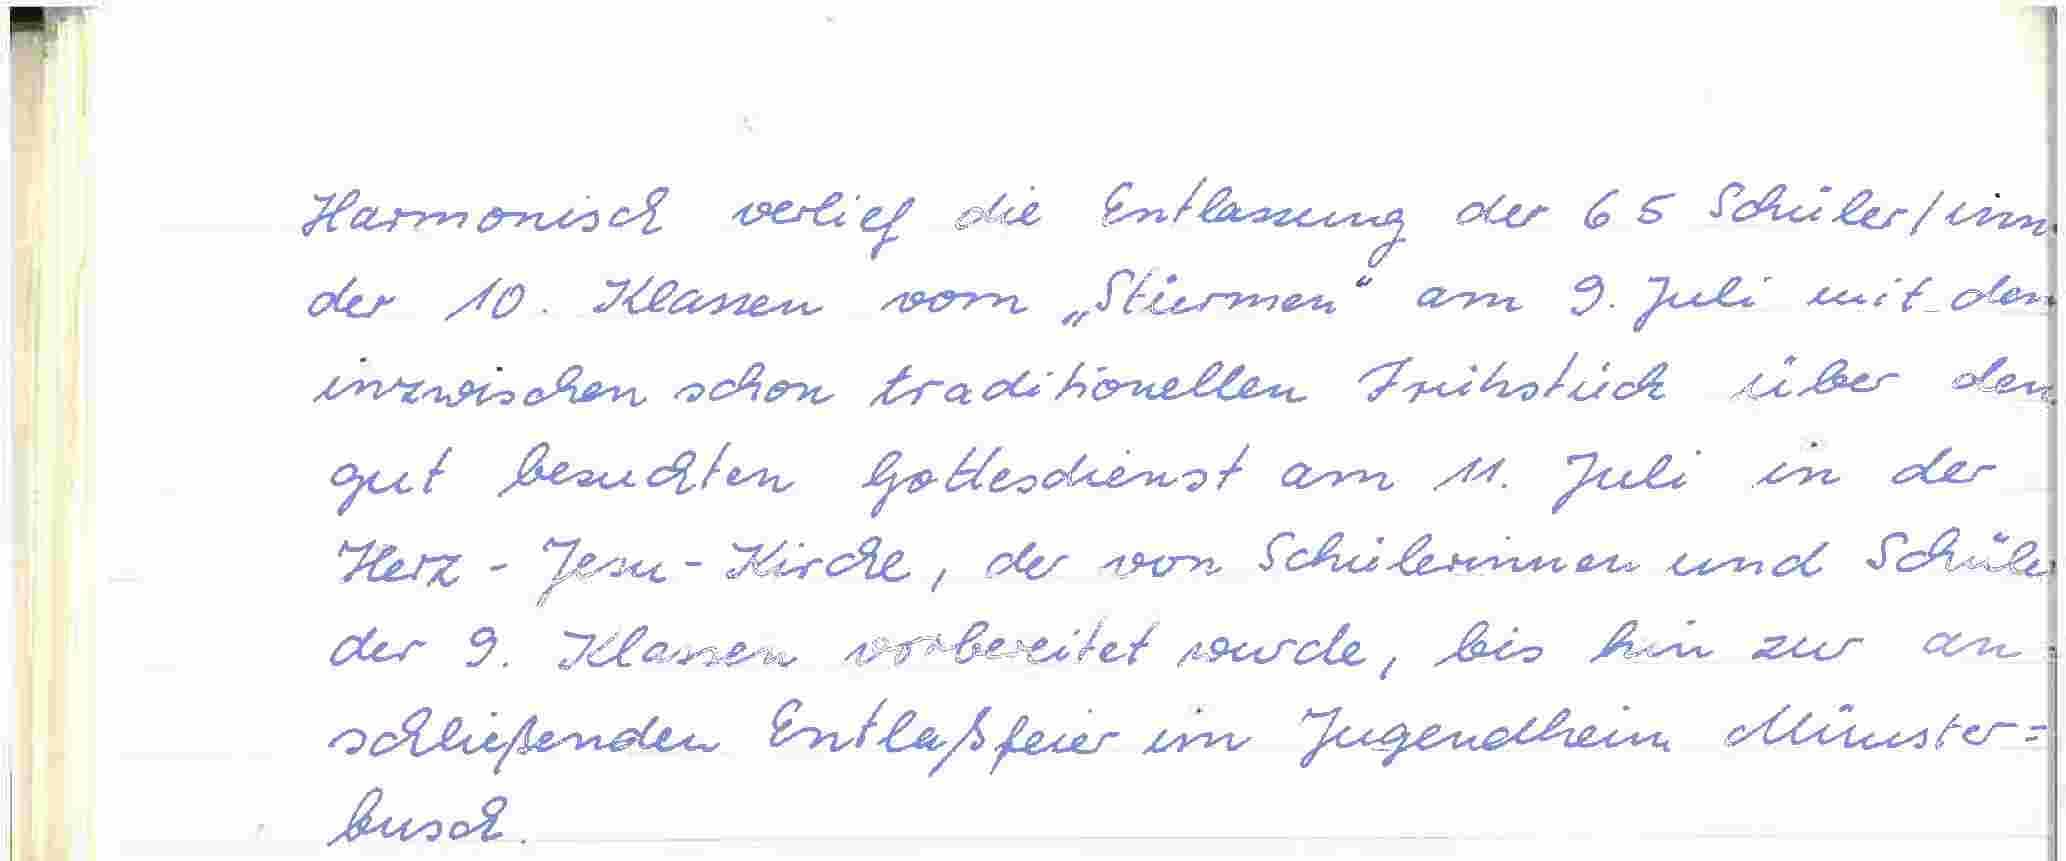 Harmonisch verlief die Entlassung der 65 Schüler/inn
der 10. Klassen vom „Stürmen“ am 9. Juli mit dem
inzwischen schon traditionellen Frühstück über den
gut besuchten Gottesdienst am 11. Juli in der
Herz-Jesu-Kirche, der von Schülerinnen und Schüle
der 9. Klassen vorbereitet wurde, bis hin zur an-
schließenden Entlaßfeier im Jugendheim Münster=
busch.